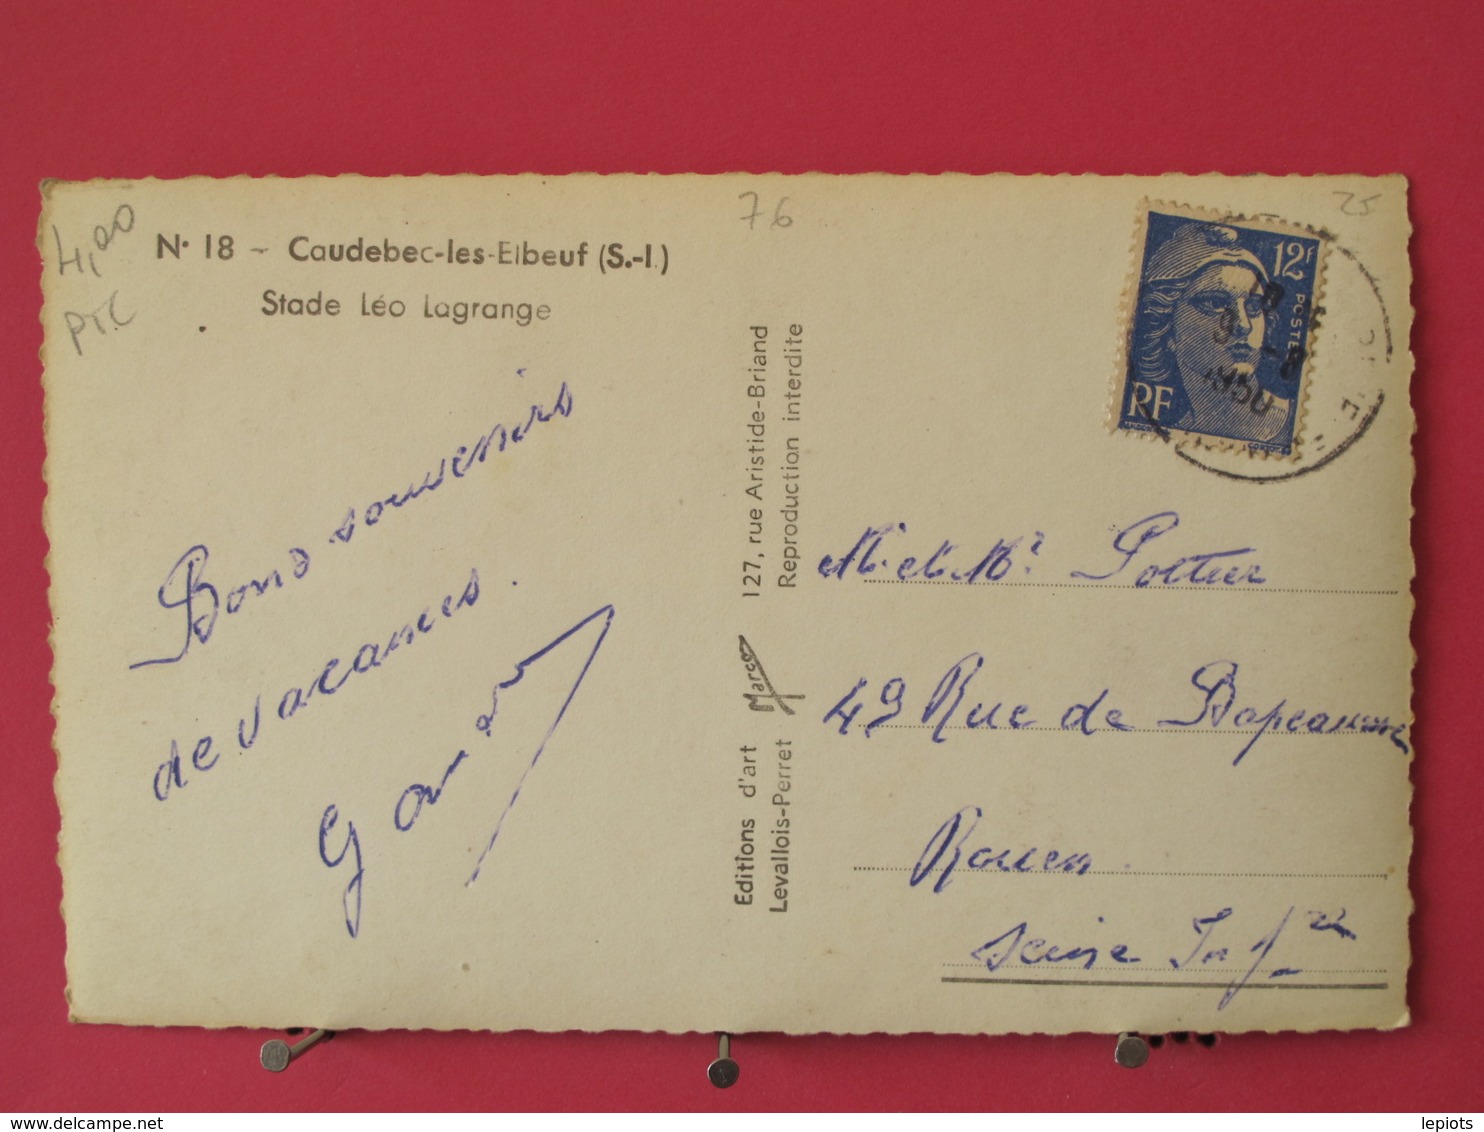 4,00
PTC
N° 18 - Caudebec-les-Elbeuf (S.-I.)
Stade Léo Lagrange
Bons souvenirs
de vacances.
76
25
127, rue Aristide-Briand
Reproduction interdite
Marco
Editions d'art
Levallois-Perret
12F
POSTES
RF
18
9 -8
1950
M. et Mme Pottier
49 Rue de Bapeaume
Rouen
Seine Infre
lepiots